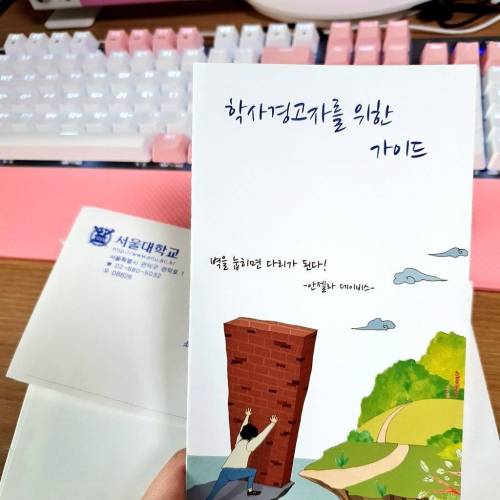 학사경고자를 위한
가이드
벽을 눕히면 다리가 된다!
-안젤라 데이비스-
서울대학교
http://www.snu.ac.kr
서울특별시 관악구 관악로 1
☎ 02-880-5032
08826